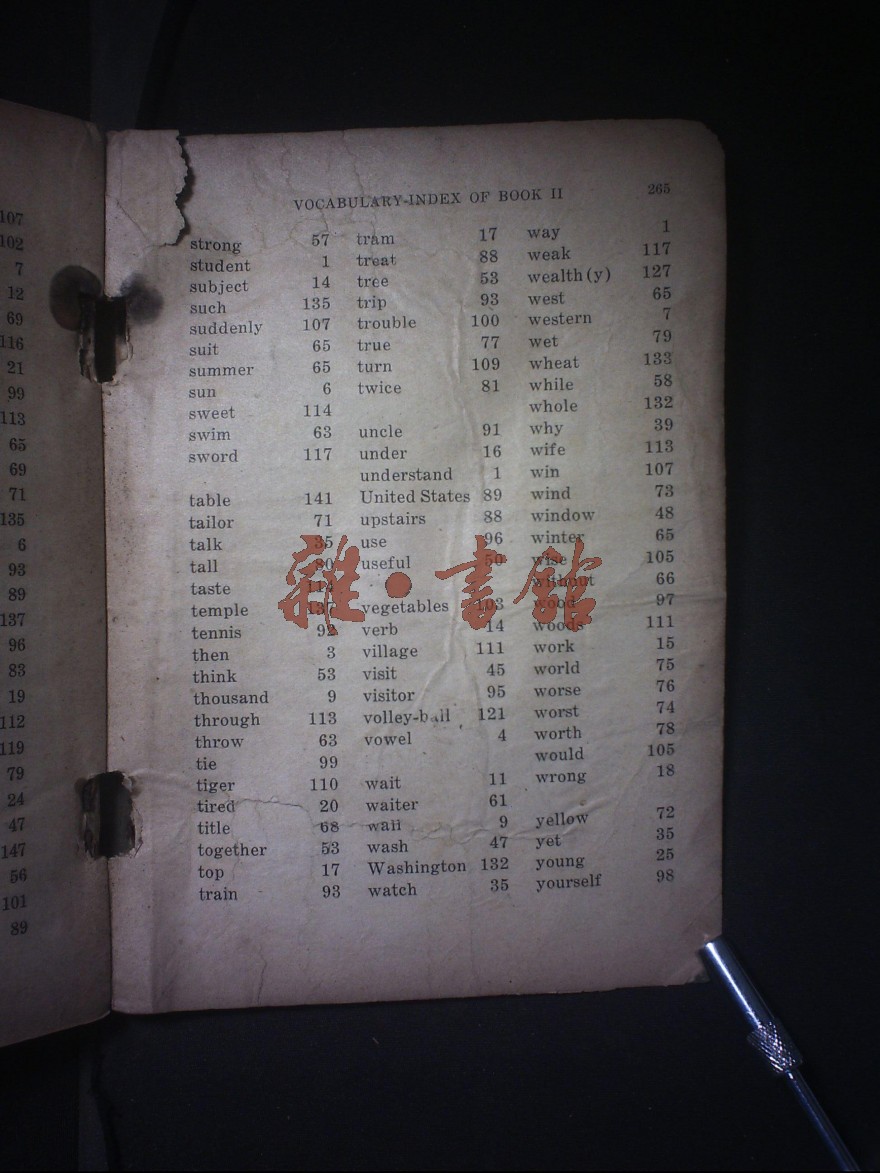 107
102
7
12
69
116
21
99
113
65
69
71
135
6
93
89
137
96
83
19
112
119
79
24
47
147
56
101
89
VOCABULARY-INDEX OF BOOK II 265
strong 57
student 1
subject 14
such 135
suddenly 107
suit 65
summer 65
sun 6
sweet 114
swim 63
sword 117
table 141
tailor 71
talk 35
tall 80
taste 114
temple 137
tennis 92
then 3
think 53
thousand 9
through 113
throw 63
tie 99
tiger 110
tired 20
title 68
together 53
top 17
train 93
tram 17
treat 88
tree 53
trip 93
trouble 100
true 77
turn 109
twice 81
uncle 91
under 16
understand 1
United States 89
upstairs 88
use 96
useful 50
vegetables 103
verb 14
village 111
visit 45
visitor 95
volley-ball 121
vowel 4
wait 11
waiter 61
wall 9
wash 47
Washington 132
watch 35
way 1
weak 117
wealth(y) 127
west 65
western 7
wet 79
wheat 133
while 58
whole 132
why 39
wife 113
win 107
wind 73
window 48
winter 65
wise 105
without 66
wood 97
woods 111
work 15
world 75
worse 76
worst 74
worth 78
would 105
wrong 18
yellow 72
yet 35
young 25
yourself 98
雜·書館